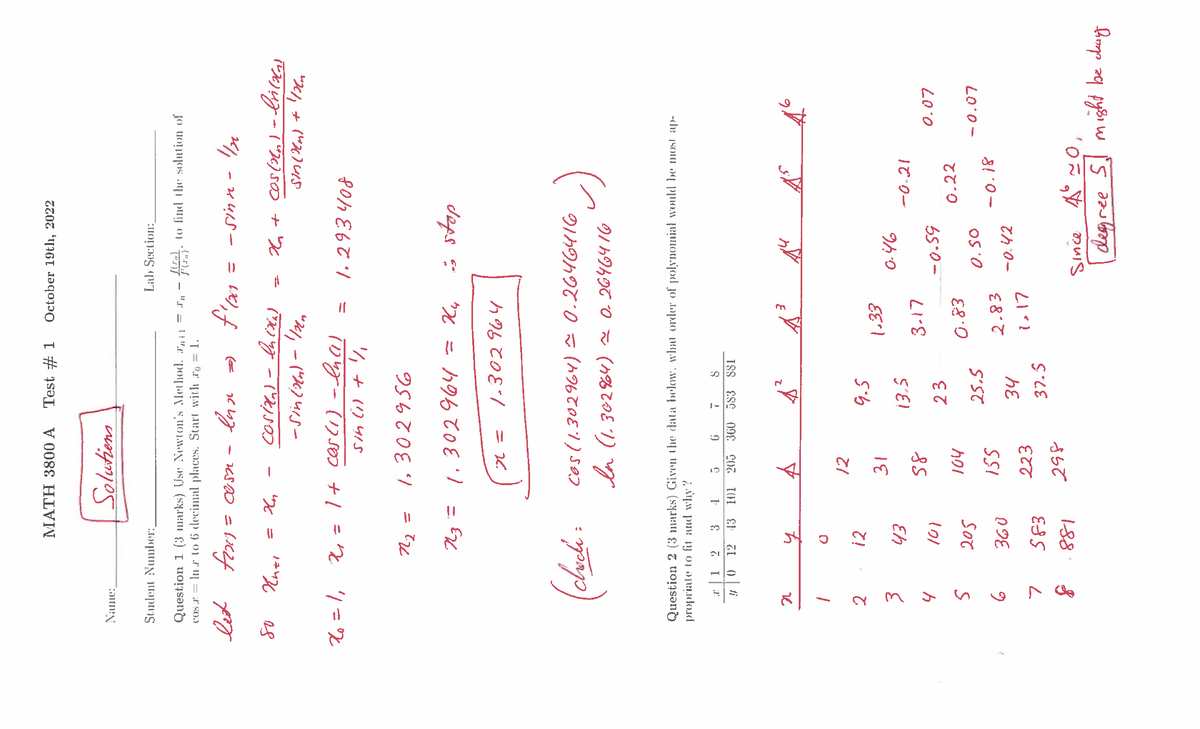 MATH 3800 A Test # 1 October 19th, 2022
Name: Solutions
Student Number: Lab Section:
Question 1 (3 marks) Use Newton's Method, xₙ₊₁ = xₙ − f(xₙ)/f′(xₙ), to find the solution of
cos x = ln x to 6 decimal places. Start with x₀ = 1.
let f(x) = cosx - lnx ⇒ f'(x) = -sinx - 1/x
so xₙ₊₁ = xₙ - (cos(xₙ) - ln(xₙ))/(-sin(xₙ) - 1/xₙ) = xₙ + (cos(xₙ) - ln(xₙ))/(sin(xₙ) + 1/xₙ)
x₀ = 1, x₁ = 1 + (cos(1) - ln(1))/(sin(1) + 1/1) = 1.293408
x₂ = 1.302956
x₃ = 1.302964 = x₄ ∴ stop
x = 1.302964
(check: cos(1.302964) ≃ 0.2646416
ln(1.302964) ≃ 0.2646416 ✓)
Question 2 (3 marks) Given the data below, what order of polynomial would be most ap-
propriate to fit and why?
x 1 2 3 4 5 6 7 8
y 0 12 43 101 205 360 583 881
x y Δ Δ² Δ³ Δ⁴ Δ⁵ Δ⁶
1 0
12
2 12 9.5
31 1.33
3 43 13.5 0.46
58 3.17 -0.21
4 101 23 -0.59 0.07
104 0.83 0.22
5 205 25.5 0.50 -0.07
155 2.83 -0.18
6 360 34 -0.42
223 1.17
7 583 37.5
298
8 881
Since Δ⁶ ≃ 0,
degree 5 might be okay